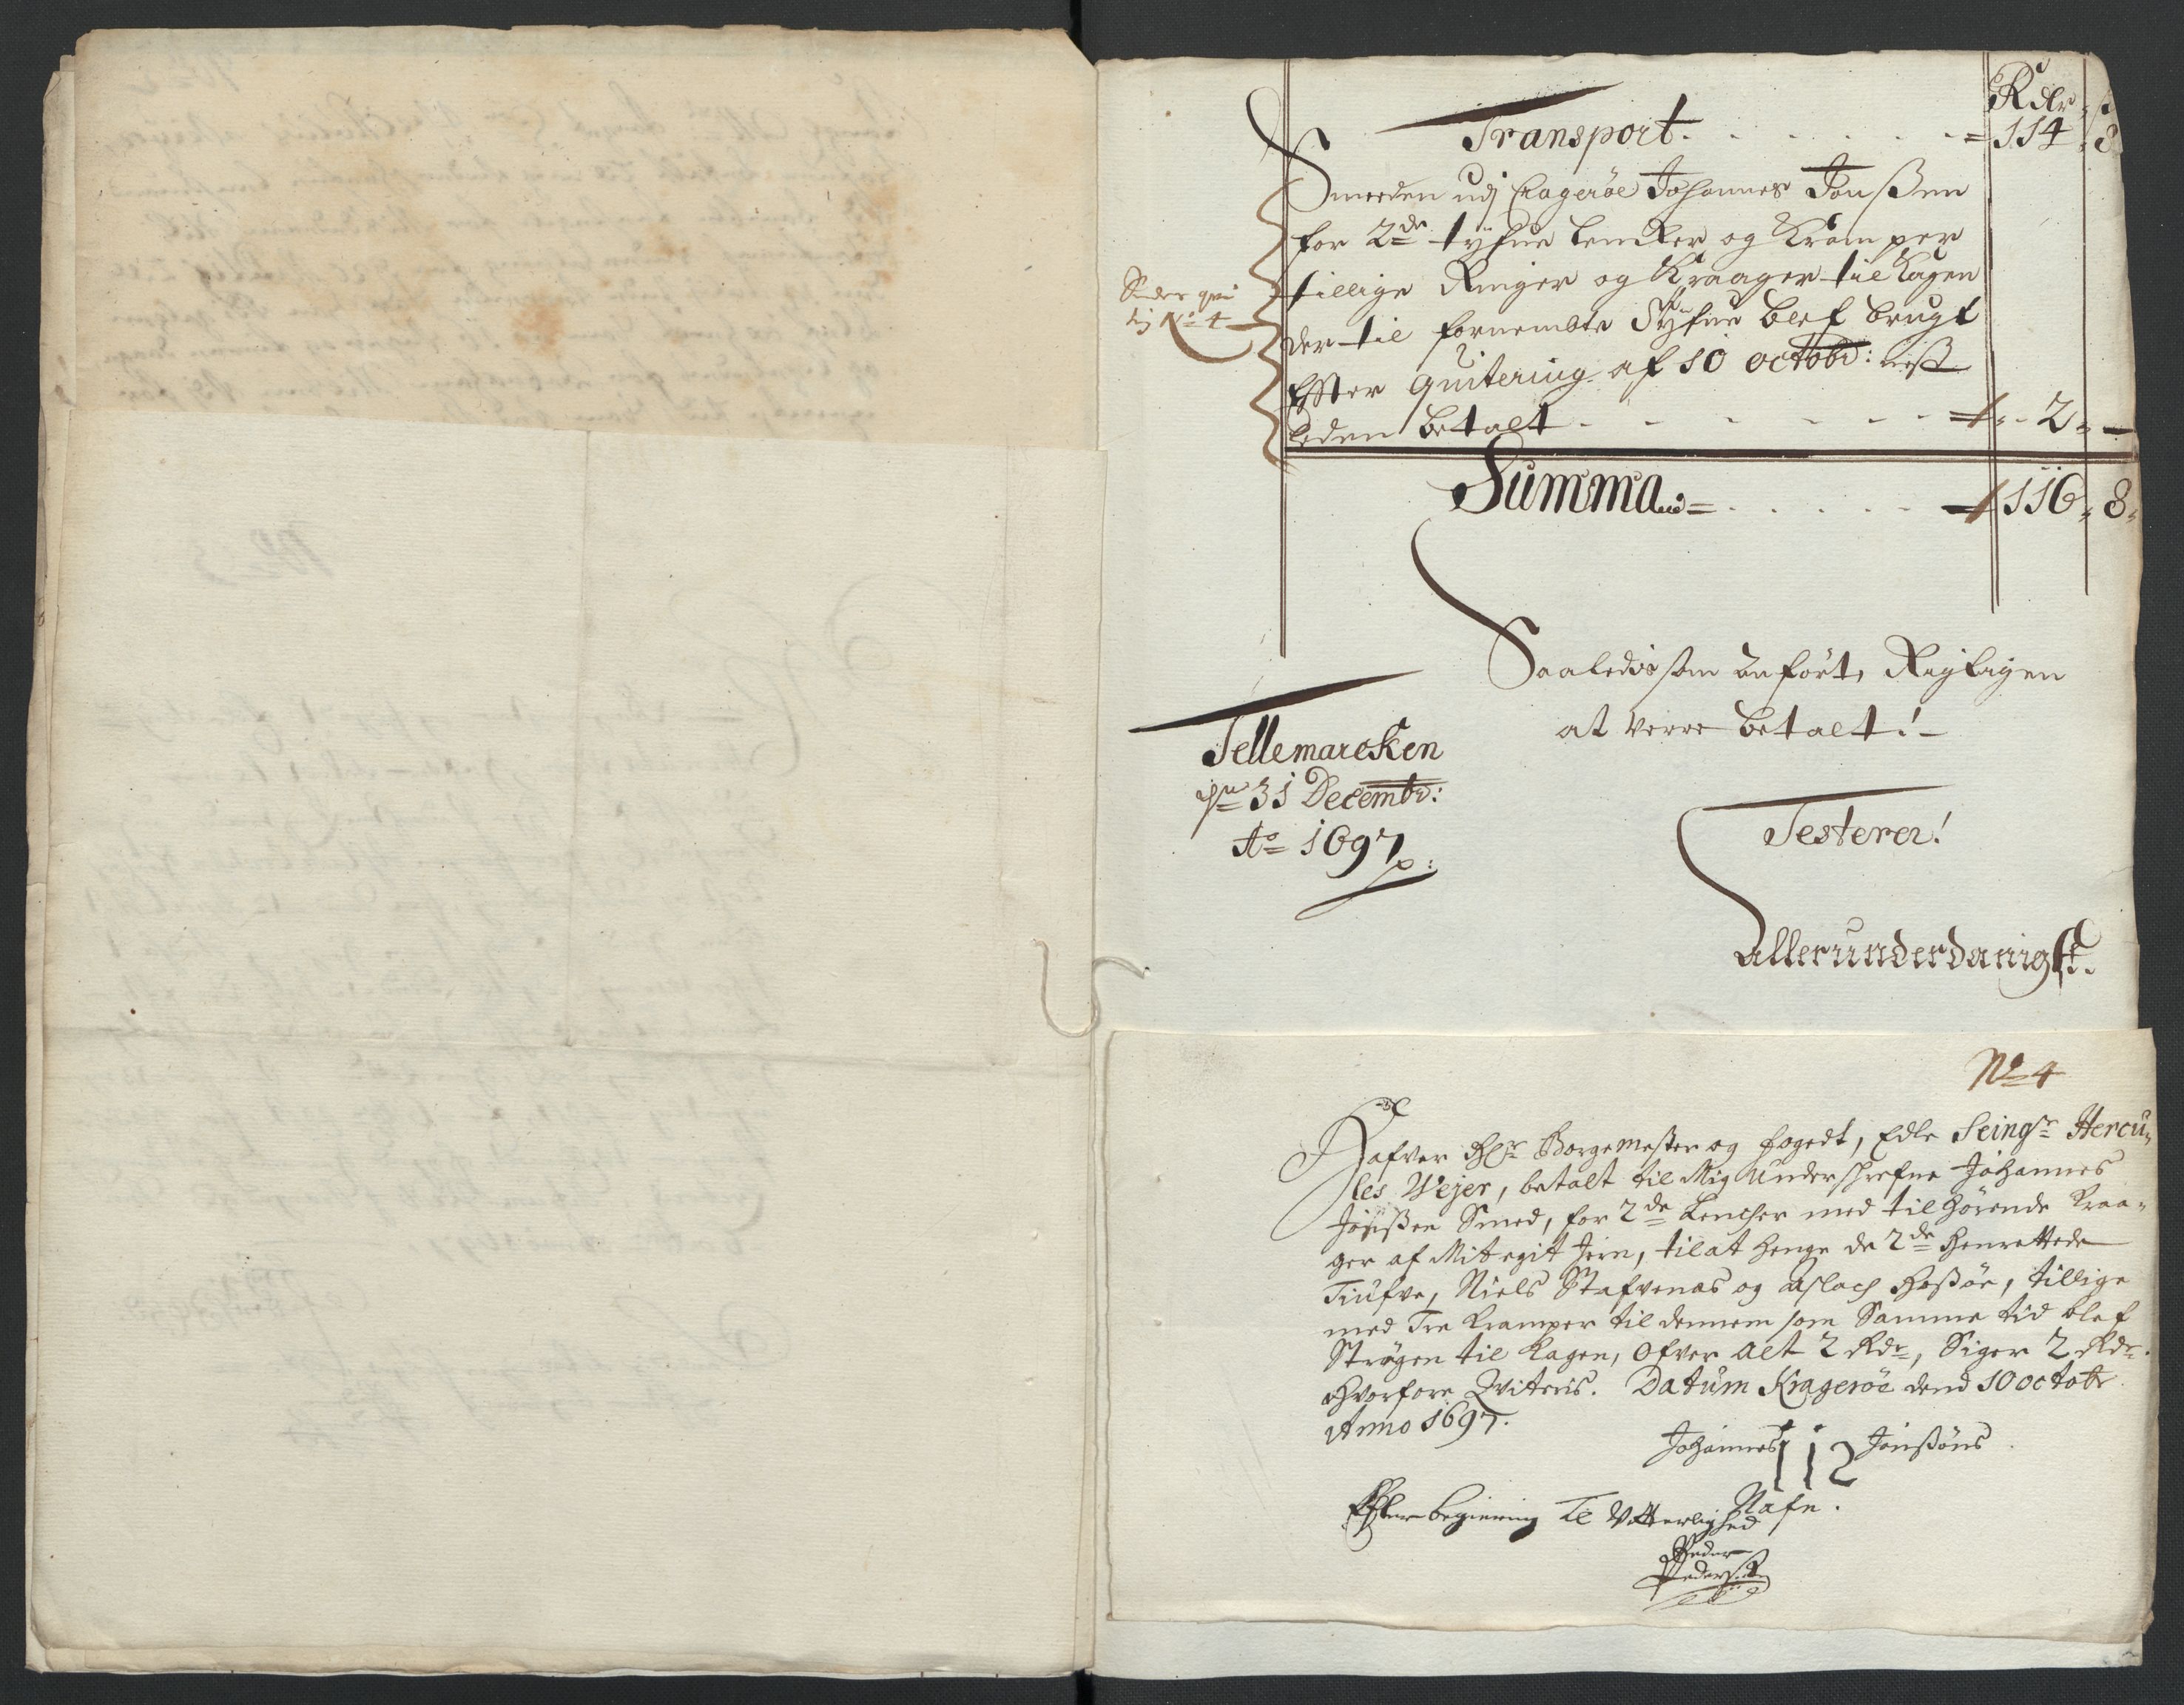 Rdlr ß
Transport - - - - - - - 114 8
Smeden udj Cragerøe Johannes Jonßen
for 2de tyfue Lencker og Kramper
tillige Ringer og Kraager til Kagen
der til fornembte Tyfue blef brugt
Effter quitering af 10 octobr: nest
leden betalt - - - - - - 2 -
Sub
No 4
Summa - - - - - 116 8
Saaledis som anført, Rigtigen
at verre betalt!
Tellemarcken
31 Decembr:
Ao 1697
Testerer!
Allerunderdanigst.
No 4
Hafver Hr Borgemester og fogedt, Edle Seingr Hercu-
les Weyer, betalt til Mig underschrefne Johannes
Jonßen Smed, for 2de Lencher med tilhørende Kraa-
ger af Mit egit Jern, til at henge de 2de Henrettede
Tiufve, Niels Stafvenas og Aslach, tillige
med Tre Kramper til dennem som Samme tid blef
Strøgen til Kagen, Ofver alt 2 Rdr, Siger 2 Rdr
Hvorfore Qviteris. Datum Kragerøe dend 10 octobr
Anno 1697.
Johannes Jonßøns
Nafn.
Efter begiering Til Vitterlighed
Peder
Pederßen